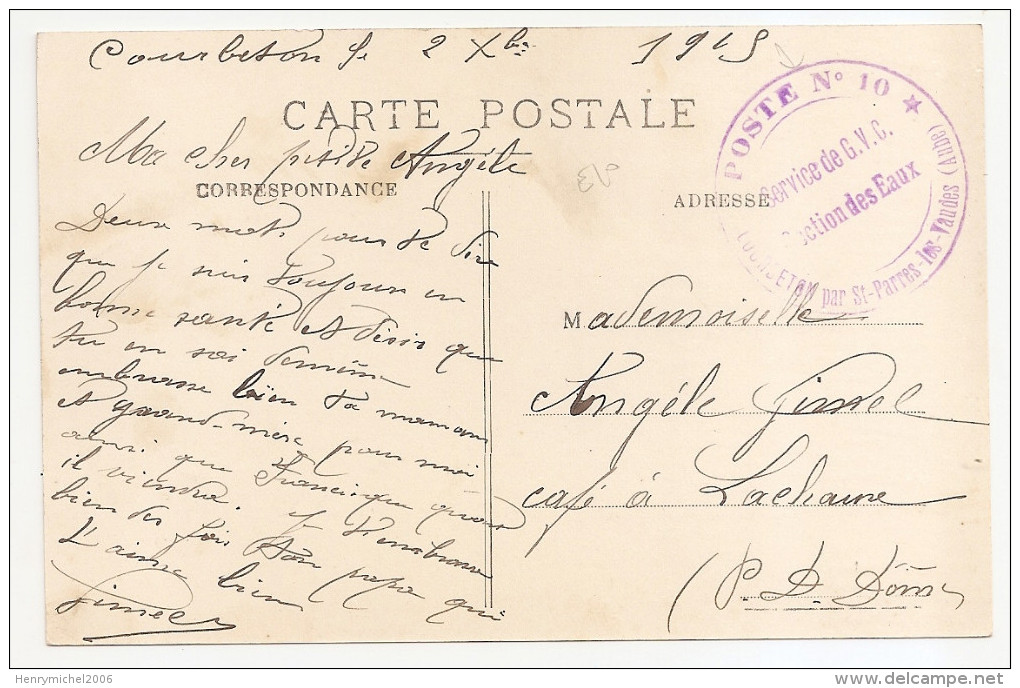 Courbeton le 2 Xbre 1915
CARTE POSTALE
Ma cher petite Angéle
CORRESPONDANCE
Deux mots pour te dire
que je suis toujour en
bonne santé et désir que
tu en soi de même
embrasse bien ta maman
et grand-mère pour moi
ainsi que Francisque quand
il viendra. je t'embrasse
bien des fois Ton papa qui
t'aime bien
Gimel
POSTE N° 10
Service de G.V.C.
Section des Eaux
COURBETON par St-Parres-les-Vaudes (Aube)
ADRESSE
Mademoiselle
Angéle Gimel
café à Lachaux
(P. D. Dôme)
Henrymichel2006
delcampe.net